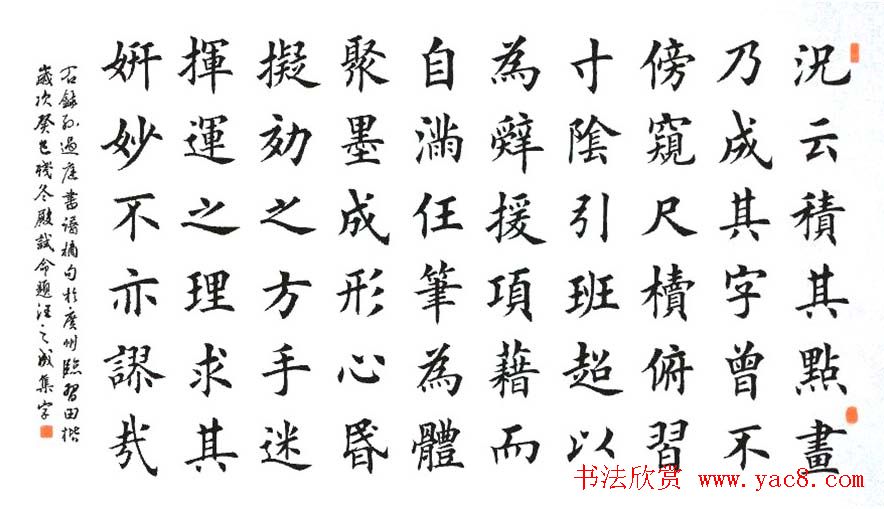 況云積其點畫
乃成其字曾不
傍窺尺櫝俯習
寸陰引班超以
為辭援項藉而
自滿任筆為體
聚墨成形心昬
擬効之方手迷
揮運之理求其
妍妙不亦謬哉
右錄孫過庭書譜摘句於廣州臨習田楷
歲次癸巳冬殿試命題汪之成集字
书法欣赏 www.yac8.com